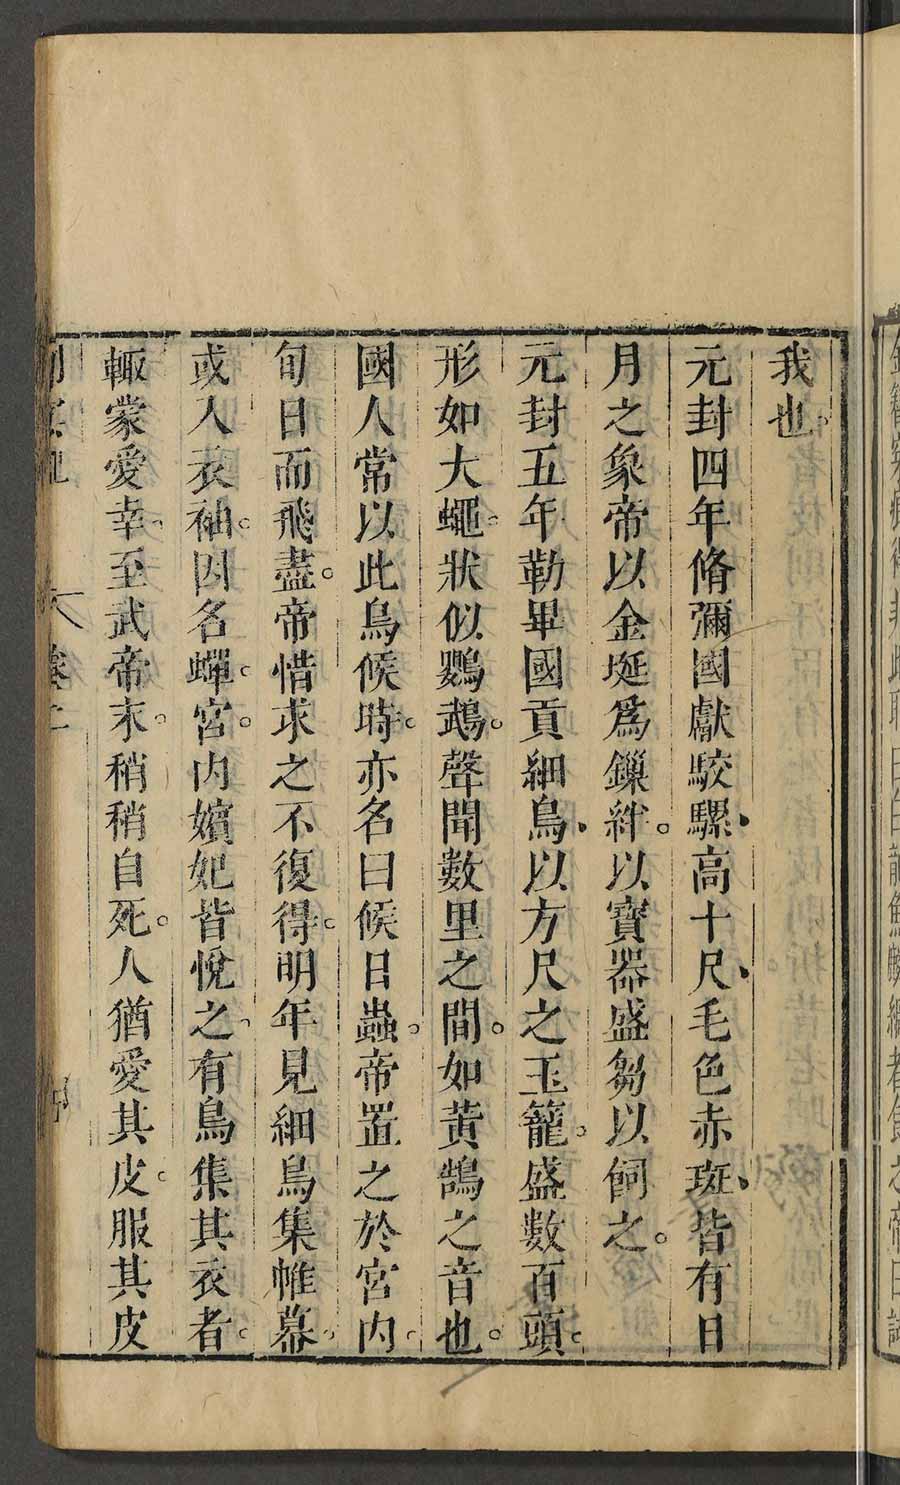 我也。
元封四年脩彌國獻駮騾、高十尺、毛色赤斑、皆有日
月之象帝以金埏爲鏁絆。以寶器盛芻以飼之。
元封五年勒畢國貢細鳥、以方尺之玉籠。盛數百頭。
形如大蠅。狀似鸚鵡。聲聞數里之間。如黃鵠之音也。
國人常以此鳥候時。亦名曰候日蟲。帝置之於宮內。
旬日而飛盡。帝惜求之不復得。明年見細鳥集帷幕。
或入衣袖。因名蟬。宮內嬪妃皆悅之、有鳥集其衣者。
輒蒙愛幸、至武帝末。稍稍自死。人猶愛其皮。服其皮